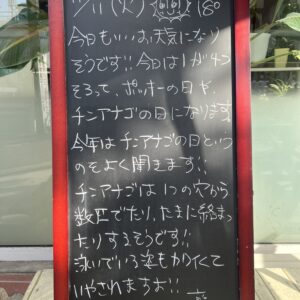 11/11(火) 18°
今日もいいお天気になり
そうです!! 今日は1が4つ
そろって、ポッキーの日や、
チンアナゴの日になります。
今年はチンアナゴの日という
のをよく聞きます!!
チンアナゴは1つの穴から
数匹でたり、たまに絡まっ
たりするそうです!!
泳いでいる姿もかわいくて
いやされますよ!!